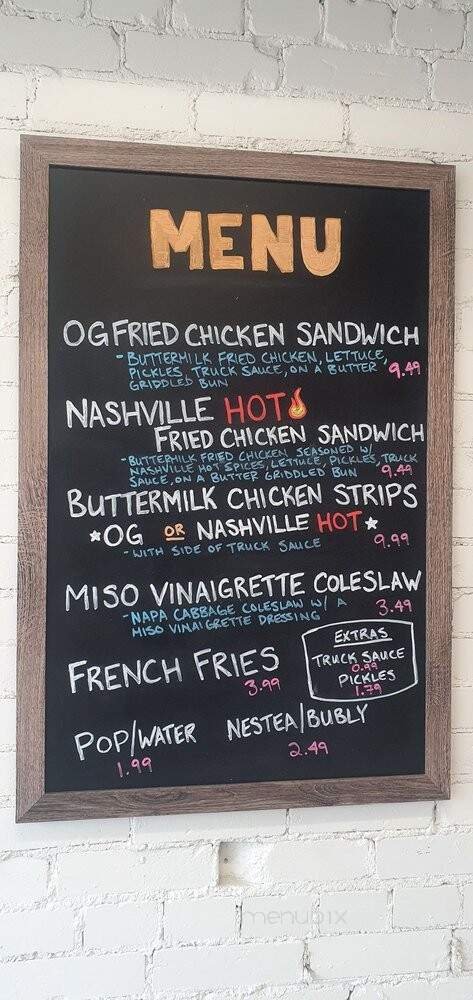 MENU
OG FRIED CHICKEN SANDWICH
- BUTTERMILK FRIED CHICKEN, LETTUCE,
PICKLES, TRUCK SAUCE, ON A BUTTER 9.49
GRIDDLED BUN
NASHVILLE HOT
FRIED CHICKEN SANDWICH
- BUTTERMILK FRIED CHICKEN SEASONED W/
NASHVILLE HOT SPICES, LETTUCE, PICKLES, TRUCK
SAUCE, ON A BUTTER GRIDDLED BUN 9.49
BUTTERMILK CHICKEN STRIPS
★OG OR NASHVILLE HOT★
- WITH SIDE OF TRUCK SAUCE 9.99
MISO VINAIGRETTE COLESLAW
- NAPA CABBAGE COLESLAW W/ A 3.49
MISO VINAIGRETTE DRESSING
FRENCH FRIES
3.99
EXTRAS
TRUCK SAUCE
0.99
PICKLES
1.79
POP/WATER
1.99
NESTEA/BUBLY
2.49
menupix